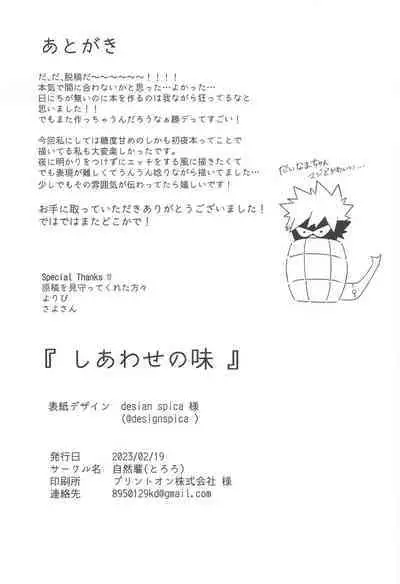 あとがき
だ、だ、脱稿だ～～～～～～！！！！
本気で間に合わないかと思った…よかった…
日にちが無いのに本を作るのは我ながら狂ってるなと
思いました！！
でもまた作っちゃうんだろうなぁ勝デってすごい！
今回私にしては糖度甘めのしかも初夜本ってことで
描いてる私も大変楽しかったです。
夜に明かりをつけずにエッチをする風に描きたくて
でも表現が難しくてうんうん唸りながら描いてました…
少しでもその雰囲気が伝わってたら嬉しいです！
お手に取っていただきありがとうございました！
ではではまたどこかで！
だいなまちゃん
Special Thanks
原稿を見守ってくれた方々
よりぴ
さよさん
『 しあわせの味 』
表紙デザイン desian spica 様
(@designspica )
発行日 2023/02/19
サークル名 自然薯(とろろ)
印刷所 プリントオン株式会社 様
連絡先 8950129kd@gmail.com